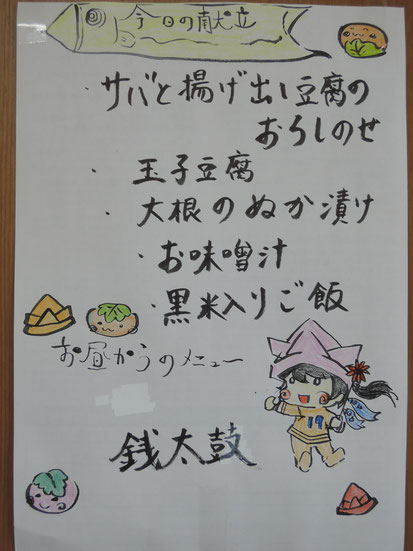 今日の献立
・サバと揚げ出し豆腐の
おろしのせ
・玉子豆腐
・大根のぬか漬け
・お味噌汁
・黒米入りご飯
お昼からのメニュー
銭太鼓
19